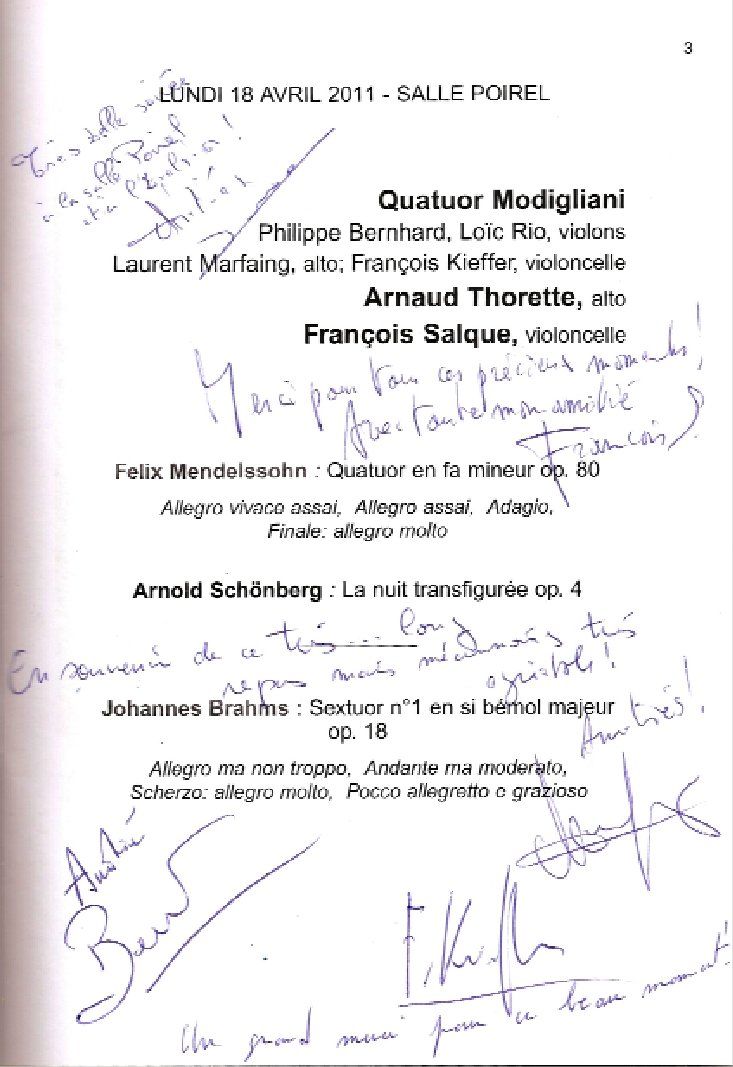 3
LUNDI 18 AVRIL 2011 - SALLE POIREL
Très belle soirée
à la salle Poirel
et à l'
Quatuor Modigliani
Philippe Bernhard, Loïc Rio, violons
Laurent Marfaing, alto; François Kieffer, violoncelle
Arnaud Thorette, alto
François Salque, violoncelle
Merci pour tous ces précieux moments!
Avec toute mon amitié
François
Felix Mendelssohn : Quatuor en fa mineur op. 80
Allegro vivaco assai, Allegro assai, Adagio,
Finale: allegro molto
Arnold Schönberg : La nuit transfigurée op. 4
En souvenir de ce très... long
repas mais néanmoins très
agréable!
Johannes Brahms : Sextuor n°1 en si bémol majeur
op. 18
Amitiés!
Allegro ma non troppo, Andante ma moderato,
Scherzo: allegro molto, Pocco allegretto e grazioso
Amitiés
F. Kieffer
Un grand merci pour ce beau moment!